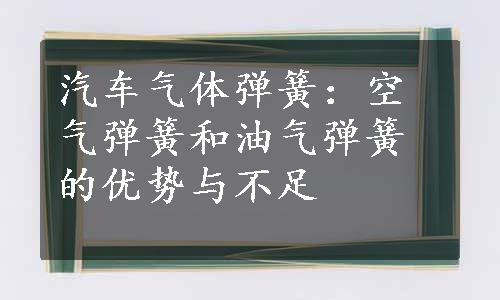 汽车气体弹簧：空
气弹簧和油气弹簧
的优势与不足